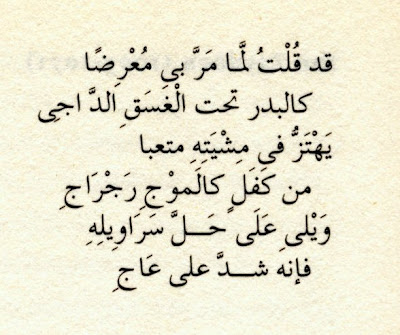 قد قُلْتُ لَمَّا مَرَّ بى مُعْرِضًا
كالبدر تحت الْغَسَقِ الدَّاجِى
يَهْتَزُّ فى مِشْيَتِهِ متعبا
من كَفَلٍ كالَموْجِ رَجْرَاجِ
وَيْلِى عَلَى حَلَّ سَرَاوِيلِهِ
فإنه شدَّ على عَاجِ